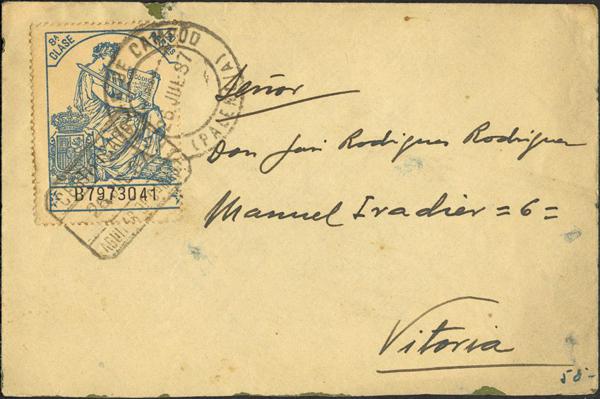 8ª
CLASE
B7973041
JUL 37
(PALENCIA)
Señor
Don José Rodriguez Rodriguez
Manuel Iradier = 6 =
Vitoria
58-